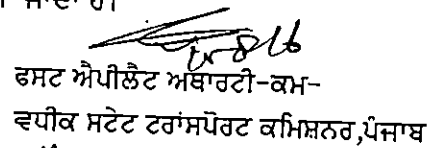 ਜਾਂਦਾ ਹੈ।
ਫਸਟ ਐਪੀਲੈਟ ਅਥਾਰਟੀ-ਕਮ-
ਵਧੀਕ ਸਟੇਟ ਟਰਾਂਸਪੋਰਟ ਕਮਿਸ਼ਨਰ,ਪੰਜਾਬ